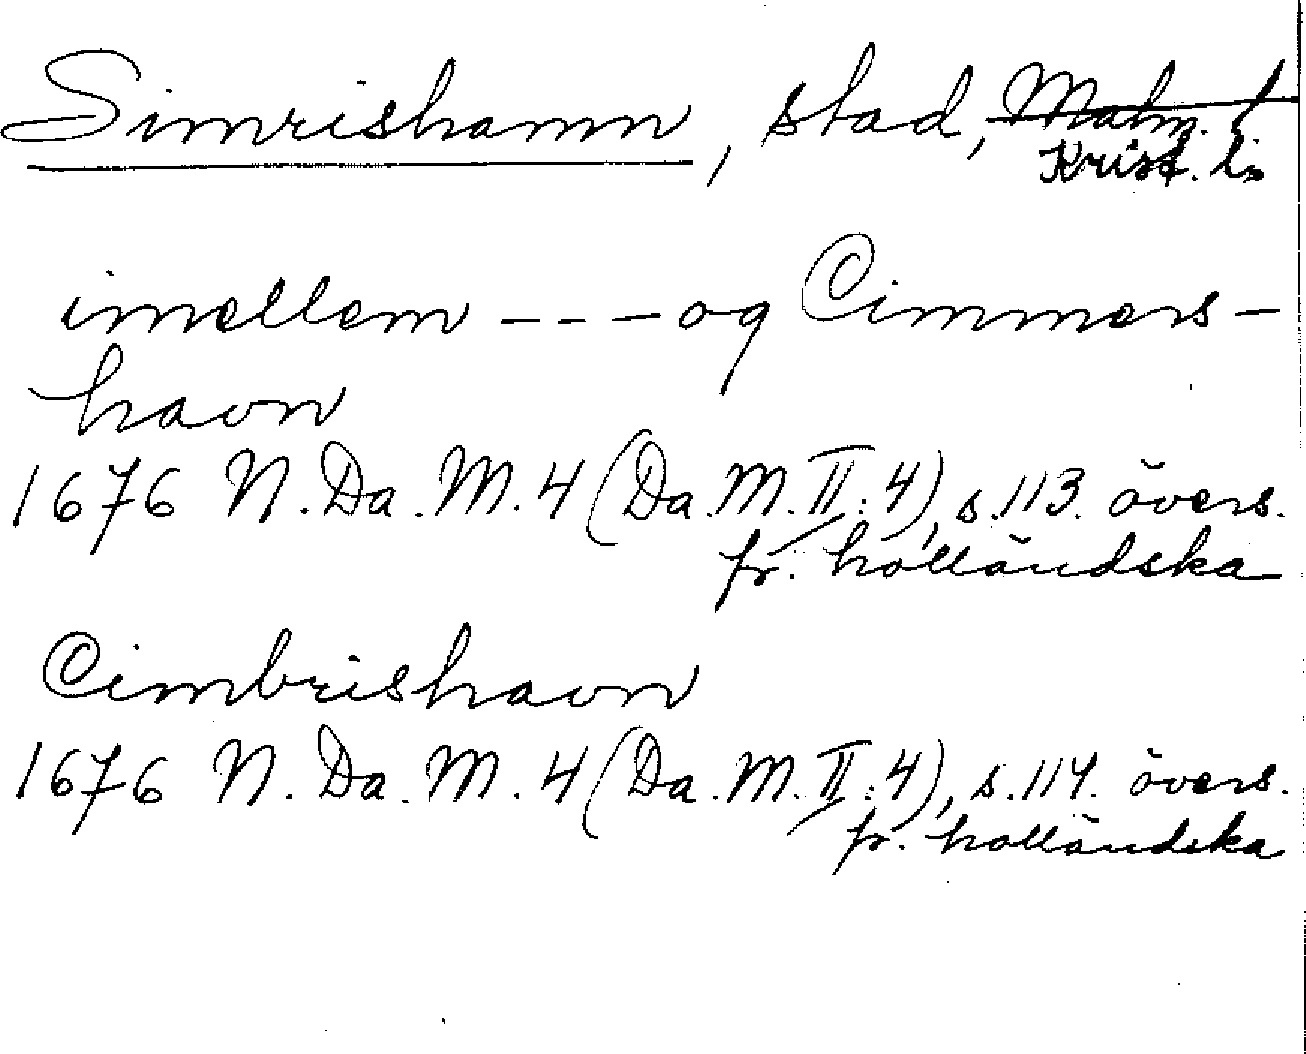 Simrishamn, stad, Malm. l
Krist. l:
imellem --- og Cimmers-
havn
1676 N. Da. M. 4 (Da. M. II:4), s. 113. övers.
fr. holländska
Cimbrishavn
1676 N. Da. M. 4 (Da. M. II:4), s. 114. övers.
fr. holländska